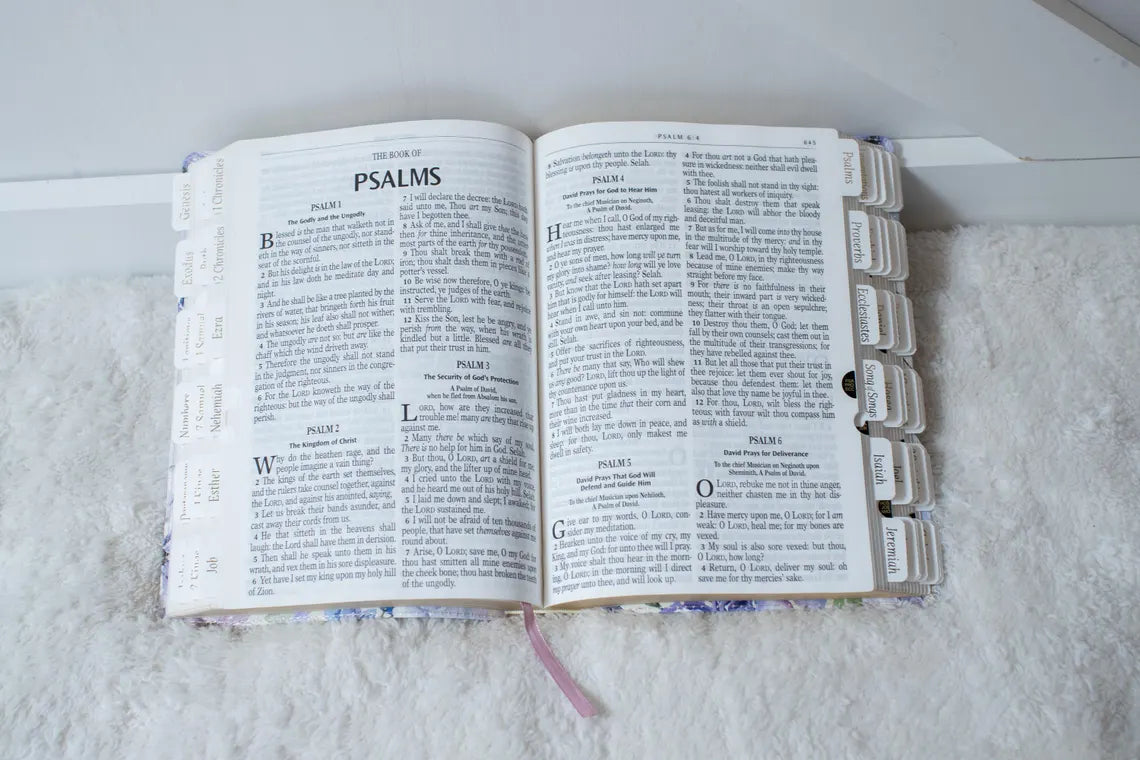 Genesis
1 Chronicles
Exodus
Ruth
2 Chronicles
1 Samuel
Ezra
Numbers
2 Samuel
Nehemiah
Esther
Job
THE BOOK OF
PSALMS
PSALM 1
The Godly and the Ungodly
Blessed is the man that walketh not in
the counsel of the ungodly, nor stand-
eth in the way of sinners, nor sitteth in the
seat of the scornful.
2 But his delight is in the law of the LORD;
and in his law doth he meditate day and
night.
3 And he shall be like a tree planted by the
rivers of water, that bringeth forth his fruit
in his season; his leaf also shall not wither;
and whatsoever he doeth shall prosper.
4 The ungodly are not so: but are like the
chaff which the wind driveth away.
5 Therefore the ungodly shall not stand
in the judgment, nor sinners in the congre-
gation of the righteous.
6 For the LORD knoweth the way of the
righteous: but the way of the ungodly shall
perish.
PSALM 2
The Kingdom of Christ
Why do the heathen rage, and the
people imagine a vain thing?
2 The kings of the earth set themselves,
and the rulers take counsel together, against
the LORD, and against his anointed, saying,
3 Let us break their bands asunder, and
cast away their cords from us.
4 He that sitteth in the heavens shall
laugh: the Lord shall have them in derision.
5 Then shall he speak unto them in his
wrath, and vex them in his sore displeasure.
6 Yet have I set my king upon my holy hill
of Zion.
7 I will declare the decree: the LORD hath
said unto me, Thou art my Son; this day
have I begotten thee.
8 Ask of me, and I shall give thee the
then for thine inheritance, and the utter-
most parts of the earth for thy possession.
9 Thou shalt break them with a rod of
iron; thou shalt dash them in pieces like a
potter's vessel.
10 Be wise now therefore, O ye kings: be
instructed, ye judges of the earth.
11 Serve the LORD with fear, and rejoice
with trembling.
12 Kiss the Son, lest he be angry, and ye
perish from the way, when his wrath is
kindled but a little. Blessed are all they
that put their trust in him.
PSALM 3
The Security of God's Protection
A Psalm of David,
when he fled from Absalom his son.
LORD, how are they increased that
trouble me! many are they that rise up
against me.
2 Many there be which say of my soul,
There is no help for him in God. Selah.
3 But thou, O LORD, art a shield for me;
my glory, and the lifter up of mine head.
4 I cried unto the LORD with my voice,
and he heard me out of his holy hill. Selah.
5 I laid me down and slept; I awaked; for
the LORD sustained me.
6 I will not be afraid of ten thousands of
people, that have set themselves against me
round about.
7 Arise, O LORD; save me, O my God: for
thou hast smitten all mine enemies upon
the cheek bone; thou hast broken the teeth
of the ungodly.
PSALM 6:4
645
8 Salvation belongeth unto the LORD: thy
blessing is upon thy people. Selah.
PSALM 4
David Prays for God to Hear Him
To the chief Musician on Neginoth,
A Psalm of David.
Hear me when I call, O God of my righ-
teousness: thou hast enlarged me
when I was in distress; have mercy upon me,
and hear my prayer.
2 O ye sons of men, how long will ye turn
my glory into shame? how long will ye love
vanity, and seek after leasing? Selah.
3 But know that the LORD hath set apart
him that is godly for himself: the LORD will
hear when I call unto him.
4 Stand in awe, and sin not: commune
with your own heart upon your bed, and be
still. Selah.
5 Offer the sacrifices of righteousness,
and put your trust in the LORD.
6 There be many that say, Who will shew
us any good? LORD, lift thou up the light of
thy countenance upon us.
7 Thou hast put gladness in my heart,
more than in the time that their corn and
their wine increased.
8 I will both lay me down in peace, and
sleep: for thou, LORD, only makest me
dwell in safety.
PSALM 5
David Prays That God Will
Defend and Guide Him
To the chief Musician upon Nehiloth,
A Psalm of David.
Give ear to my words, O LORD, con-
sider my meditation.
2 Hearken unto the voice of my cry, my
King, and my God: for unto thee will I pray.
3 My voice shalt thou hear in the morn-
ing, O LORD; in the morning will I direct
my prayer unto thee, and will look up.
4 For thou art not a God that hath plea-
sure in wickedness: neither shall evil dwell
with thee.
5 The foolish shall not stand in thy sight:
thou hatest all workers of iniquity.
6 Thou shalt destroy them that speak
leasing: the LORD will abhor the bloody
and deceitful man.
7 But as for me, I will come into thy house
in the multitude of thy mercy: and in thy
fear will I worship toward thy holy temple.
8 Lead me, O LORD, in thy righteousness
because of mine enemies; make thy way
straight before my face.
9 For there is no faithfulness in their
mouth; their inward part is very wicked-
ness; their throat is an open sepulchre;
they flatter with their tongue.
10 Destroy thou them, O God; let them
fall by their own counsels; cast them out in
the multitude of their transgressions; for
they have rebelled against thee.
11 But let all those that put their trust in
thee rejoice: let them ever shout for joy,
because thou defendest them: let them
also that love thy name be joyful in thee.
12 For thou, LORD, wilt bless the righ-
teous; with favour wilt thou compass him
as with a shield.
PSALM 6
David Prays for Deliverance
To the chief Musician on Neginoth upon
Sheminith, A Psalm of David.
O LORD, rebuke me not in thine anger,
neither chasten me in thy hot dis-
pleasure.
2 Have mercy upon me, O LORD; for I am
weak: O LORD, heal me; for my bones are
vexed.
3 My soul is also sore vexed: but thou,
O LORD, how long?
4 Return, O LORD, deliver my soul: oh
save me for thy mercies' sake.
Psalms
Proverbs
Ecclesiastes
Daniel
Song of Songs
Hosea
Isaiah
Joel
Jeremiah